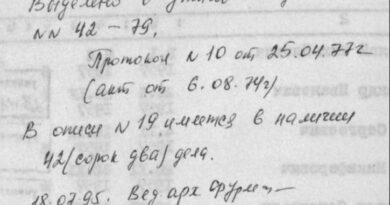 Выделено
NN 42 – 79.
Протокол N 10 от 25.04.77г
(акт от 6.08.74г)
В описи N 19 имеется в наличии
42 (сорок два) дела.
18.07.95. Вед. арх.